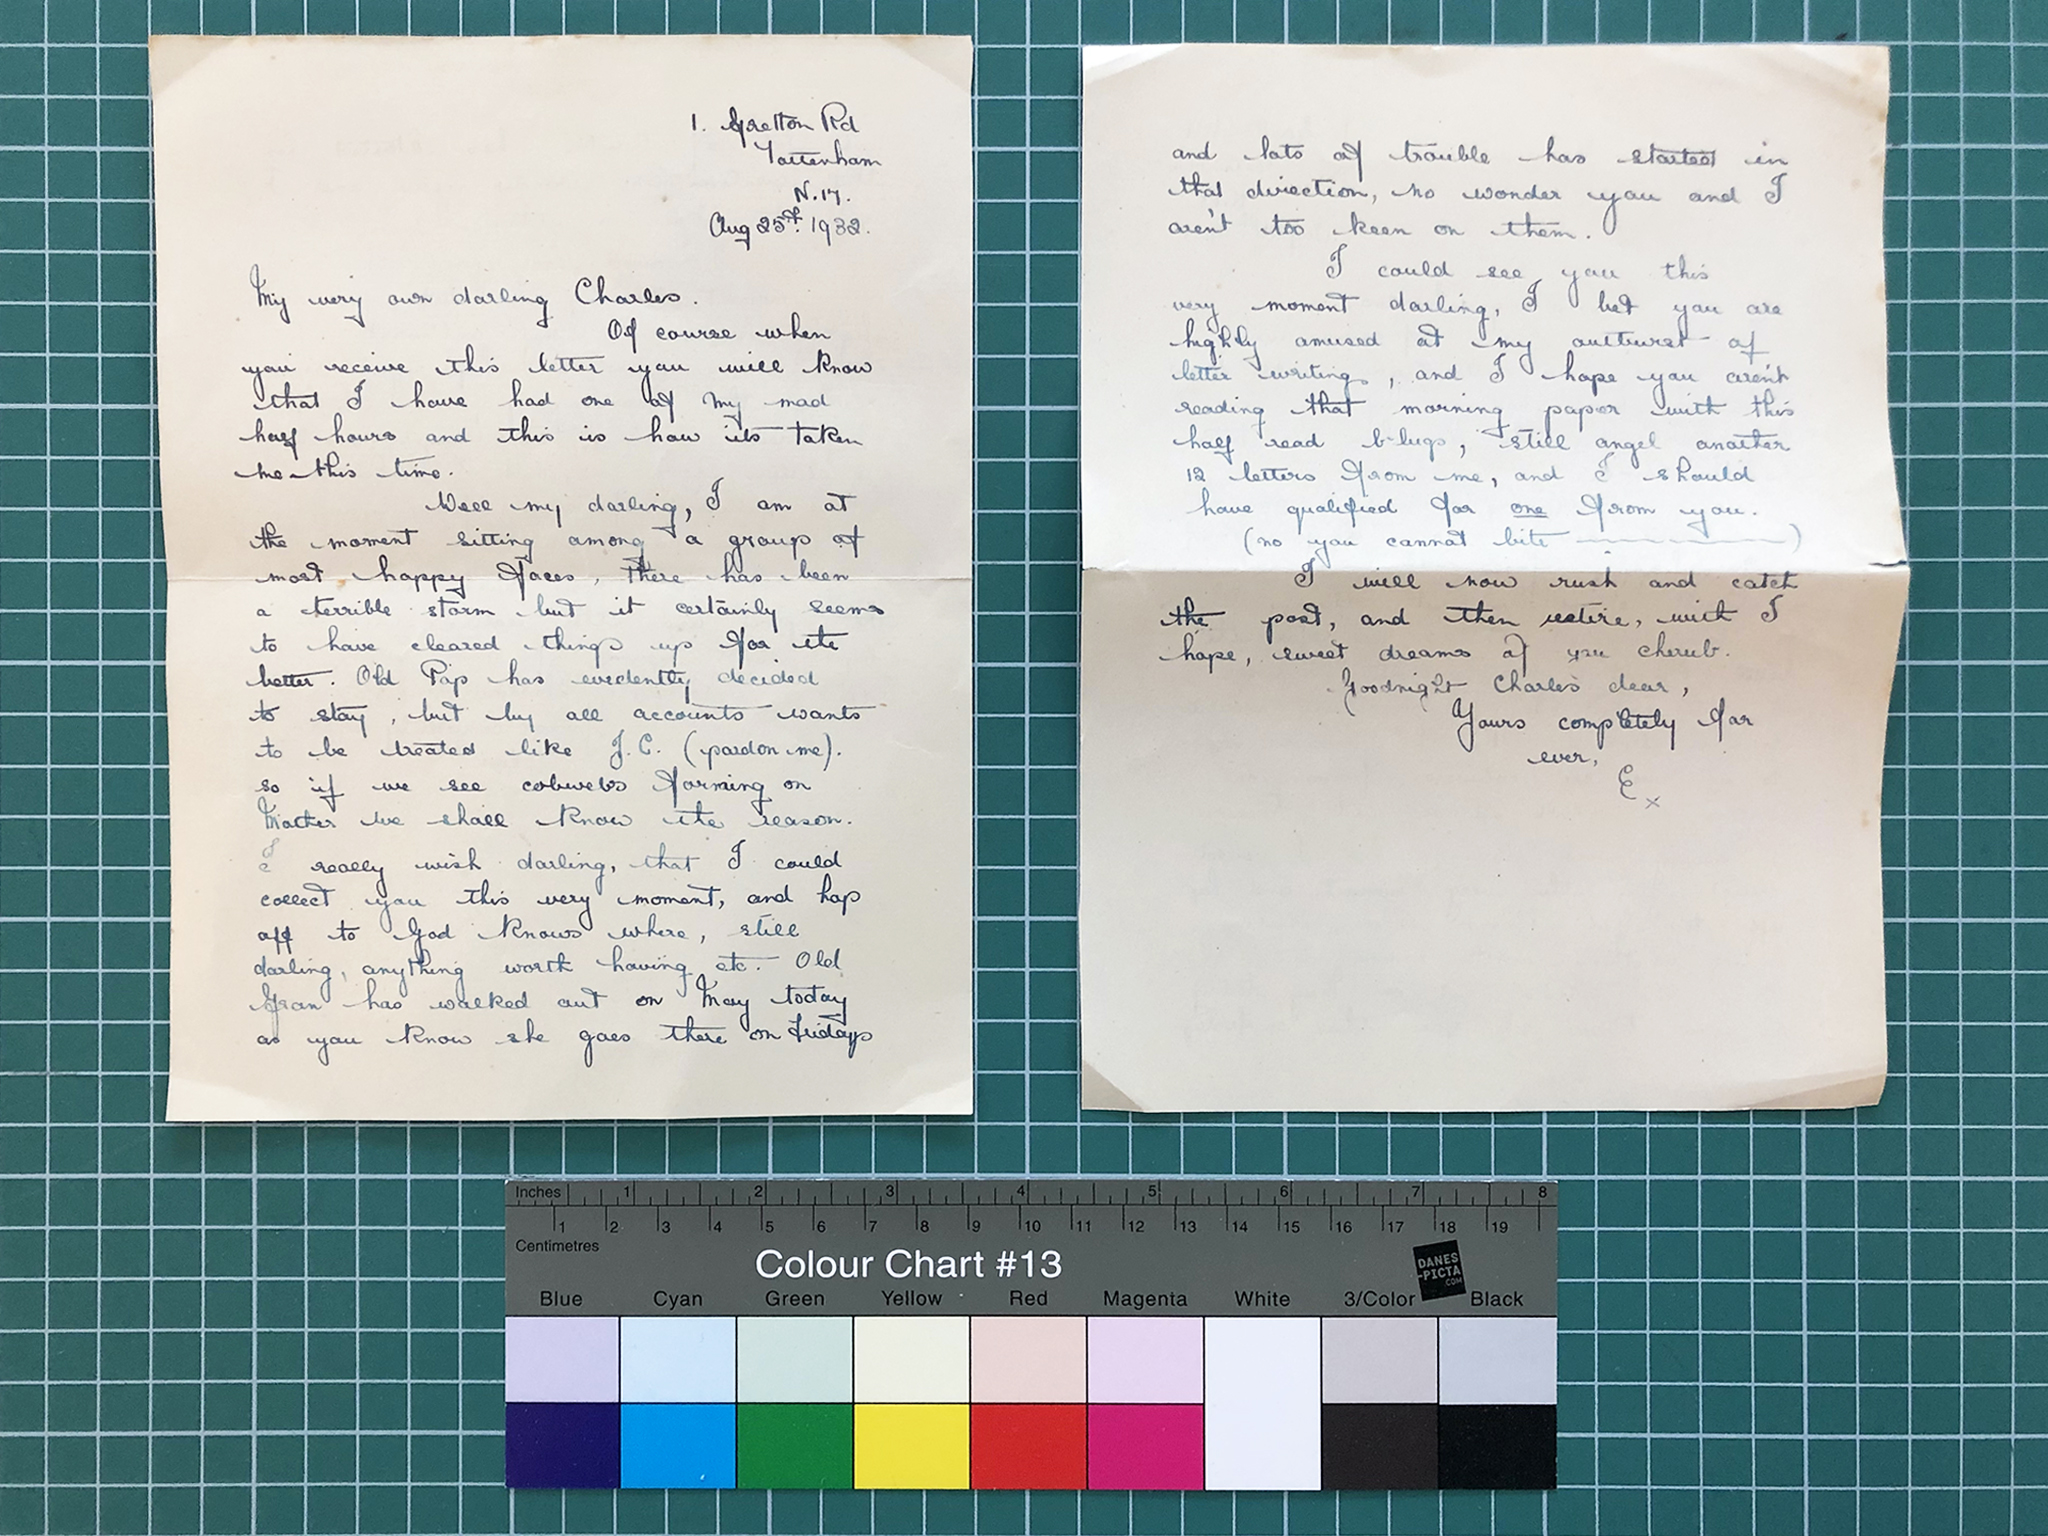 1. Gretton Rd
Tottenham
N.17.
Aug 25th. 1932.
My very own darling Charles.
Of course when
you receive this letter you will know
that I have had one of my mad
half hours and this is how its taken
me this time.
Well my darling, I am at
the moment sitting among a group of
most happy faces, there has been
a terrible storm but it certainly seems
to have cleared things up for the
better. Old Pap has evidently decided
to stay, but by all accounts wants
to be treated like J.C. (pardon me).
so if we see cobwebs forming on
Mother we shall know the reason.
I really wish darling, that I could
collect you this very moment, and hop
off to God knows where, still
darling, anything worth having etc. Old
Gran has walked out on May today
as you know she goes there on fridays
and lots of trouble has started in
that direction, no wonder you and I
aren't too keen on them.
I could see you this
very moment darling, I bet you are
highly amused at my outburst of
letter writing, and I hope you aren't
reading that morning paper with this
half read b-lugs, still angel another
12 letters from me, and I should
have qualified for one from you.
(no you cannot bite )
I will now rush and catch
the post, and then retire, with I
hope, sweet dreams of you cherub.
Goodnight Charles dear,
Yours completely for
ever,
E x
Inches 1 2 3 4 5 6 7 8
1 2 3 4 5 6 7 8 9 10 11 12 13 14 15 16 17 18 19
Centimetres
Colour Chart #13
DANES
-PICTA
.COM
Blue Cyan Green Yellow Red Magenta White 3/Color Black